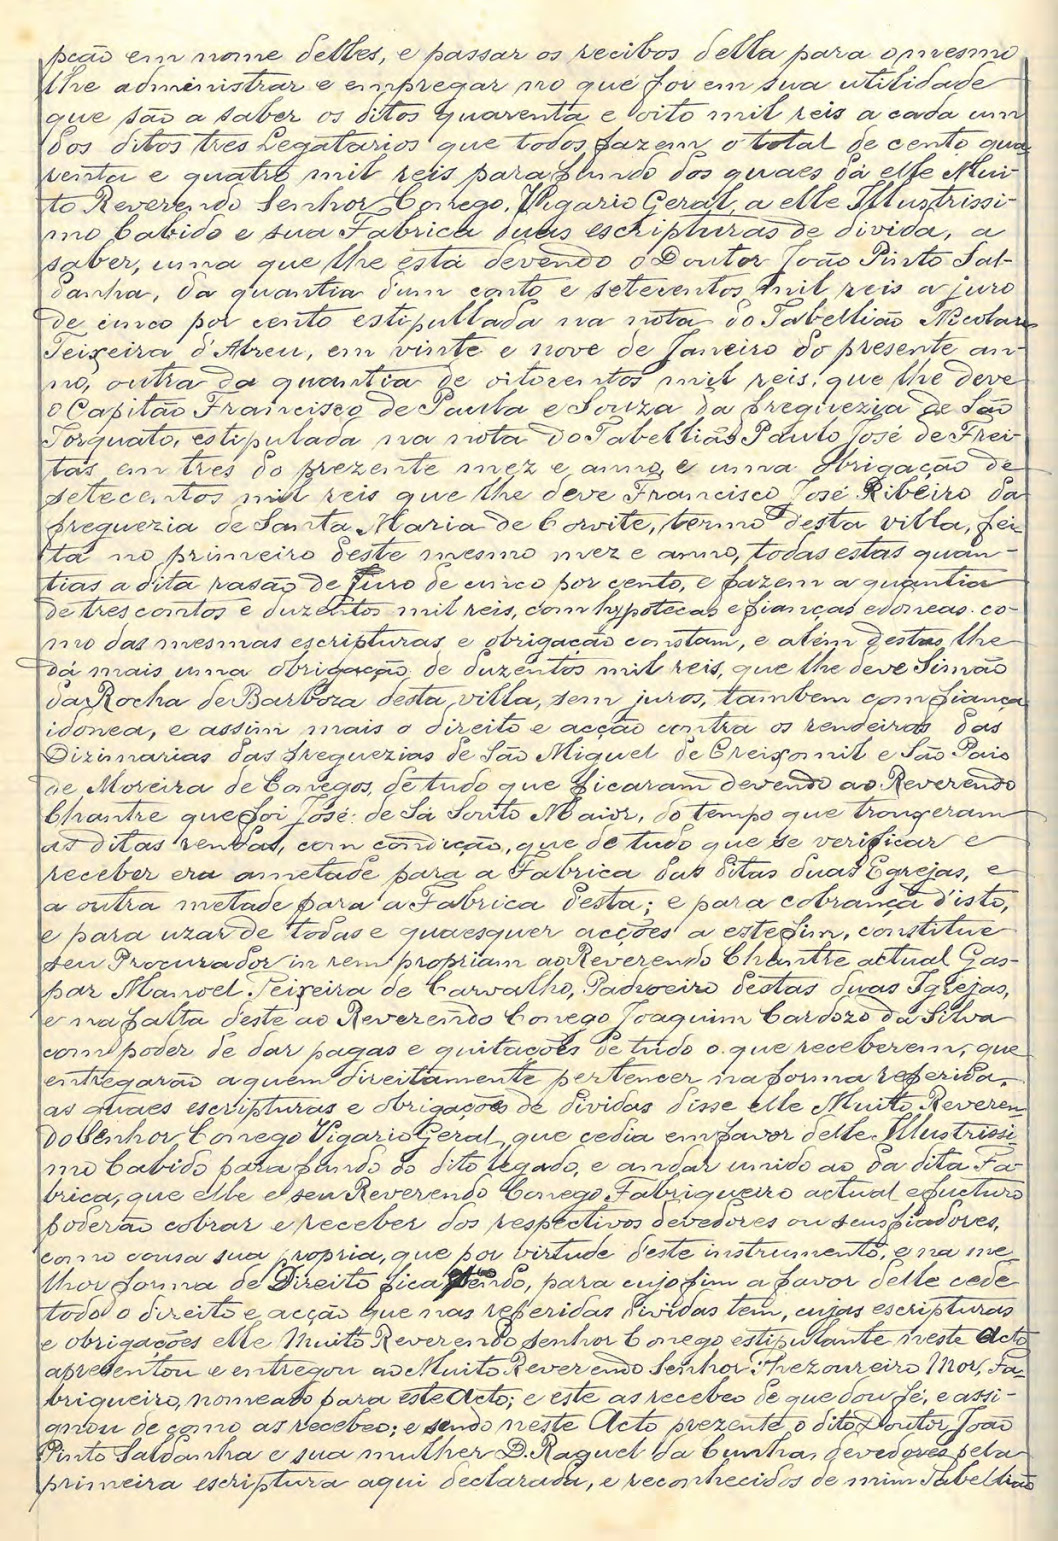 pção em nome delles, e passar os recibos della para o mesmo
lhe administrar e empregar no que for em sua utilidade
que são a saber os ditos quarenta e oito mil reis a cada um
dos ditos tres Legatarios que todos fazem o total de cento qua-
renta e quatro mil reis para fundo dos quaes dá elle Mui-
to Reverendo Senhor Conego, Vigario Geral, a elle Illustrissi-
mo Cabido e sua Fabrica duas escripturas de divida, a
saber, uma que lhe está devendo o Doutor João Pinto Sal-
danha, da quantia d'um conto e setecentos mil reis a juro
de cinco por cento estipullada na nota do Tabellião Nicolau
Teixeira d'Abreu, em vinte e nove de Janeiro do presente an-
no, outra da quantia de oitocentos mil reis, que lhe deve
o Capitão Francisco de Paula e Souza da freguezia de São
Torquato, estipulada na nota do Tabellião Paulo José de Frei-
tas em tres do prezente mez e anno, e uma obrigação de
setecentos mil reis que lhe deve Francisco José Ribeiro da
freguezia de Santa Maria de Corvite, termo desta villa, fei-
ta no primeiro deste mesmo mez e anno, todas estas quan-
tias a dita rasão de Juro de cinco por cento, e fazem a quantia
de tres contos e duzentos mil reis, com hypotecas e fianças edoneas co-
mo das mesmas escripturas e obrigação constam, e além destas lhe
dá mais uma obrigação de duzentos mil reis, que lhe deve Simão
da Rocha de Barboza desta villa, sem juros, tambem com fiança
idonea, e assim mais o direito e acção contra os rendeiros das
Dizimarias das freguezias de São Miguel de Creixomil e São Paio
de Moreira de Conegos, de tudo que ficaram devendo ao Reverendo
Chantre que foi José de Sá Souto Maior, do tempo que trouxeram
as ditas rendas, com condição, que de tudo que se verificar e
receber era ametade para a Fabrica das ditas duas Egrejas, e
a outra metade para a Fabrica desta; e para cobrança d'isto,
e para uzar de todas e quaesquer acções a este fim, constitue
seu Procurador in rem propriam ao Reverendo Chantre actual Gas-
par Manoel Teixeira de Carvalho, Padroeiro destas duas Igrejas,
e na falta deste ao Reverendo Conego Joaquim Cardozo da Silva
com poder de dar pagas e quitações de tudo o que receberem, que
entregarão a quem direitamente pertencer na forma referida.
as quaes escripturas e obrigações de dividas disse elle Muito Reveren-
do Senhor Conego Vigario Geral, que cedia em favor delle Illustrissi-
mo Cabido para fundo do dito legado, e andar unido ao da dita Fa-
brica, que elle e seu Reverendo Conego Fabriqueiro actual e fucturo
poderão cobrar e receber dos respectivos devedores ou seus fiadores,
como cousa sua propria, que por virtude d'este instrumento, e na me-
lhor forma de Direito fica sendo, para cujo fim a favor delle cede
todo o direito e acção que nas referidas dividas tem, cujas escripturas
e obrigações elle Muito Reverendo Senhor Conego estipulante neste Acto
apresentou e entregou ao Muito Reverendo Senhor Thezoureiro Mor, Fa-
briqueiro, nomeado para este Acto; e este as recebeo de que dou fé, e assi-
gnou de como as recebeo; e sendo neste Acto prezente o dito Doutor João
Pinto Saldanha e sua mulher D. Raquel da Cunha, devedores pela
primeira escriptura aqui declarada, e reconhecidos de mim Tabellião